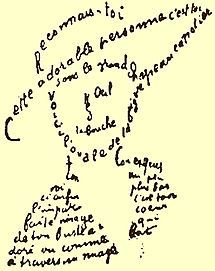 Reconnais-toi
Cette adorable personne c'est toi
Sous le grand chapeau canotier
Œil
Nez
la bouche
Voici l'ovale de ta figure
Ton cou exquis
voi
ci enfin
l'impar
faite image
de ton buste a
doré vu comme
à travers un nuage
un peu
plus bas
c'est ton
coeur
qui
bat